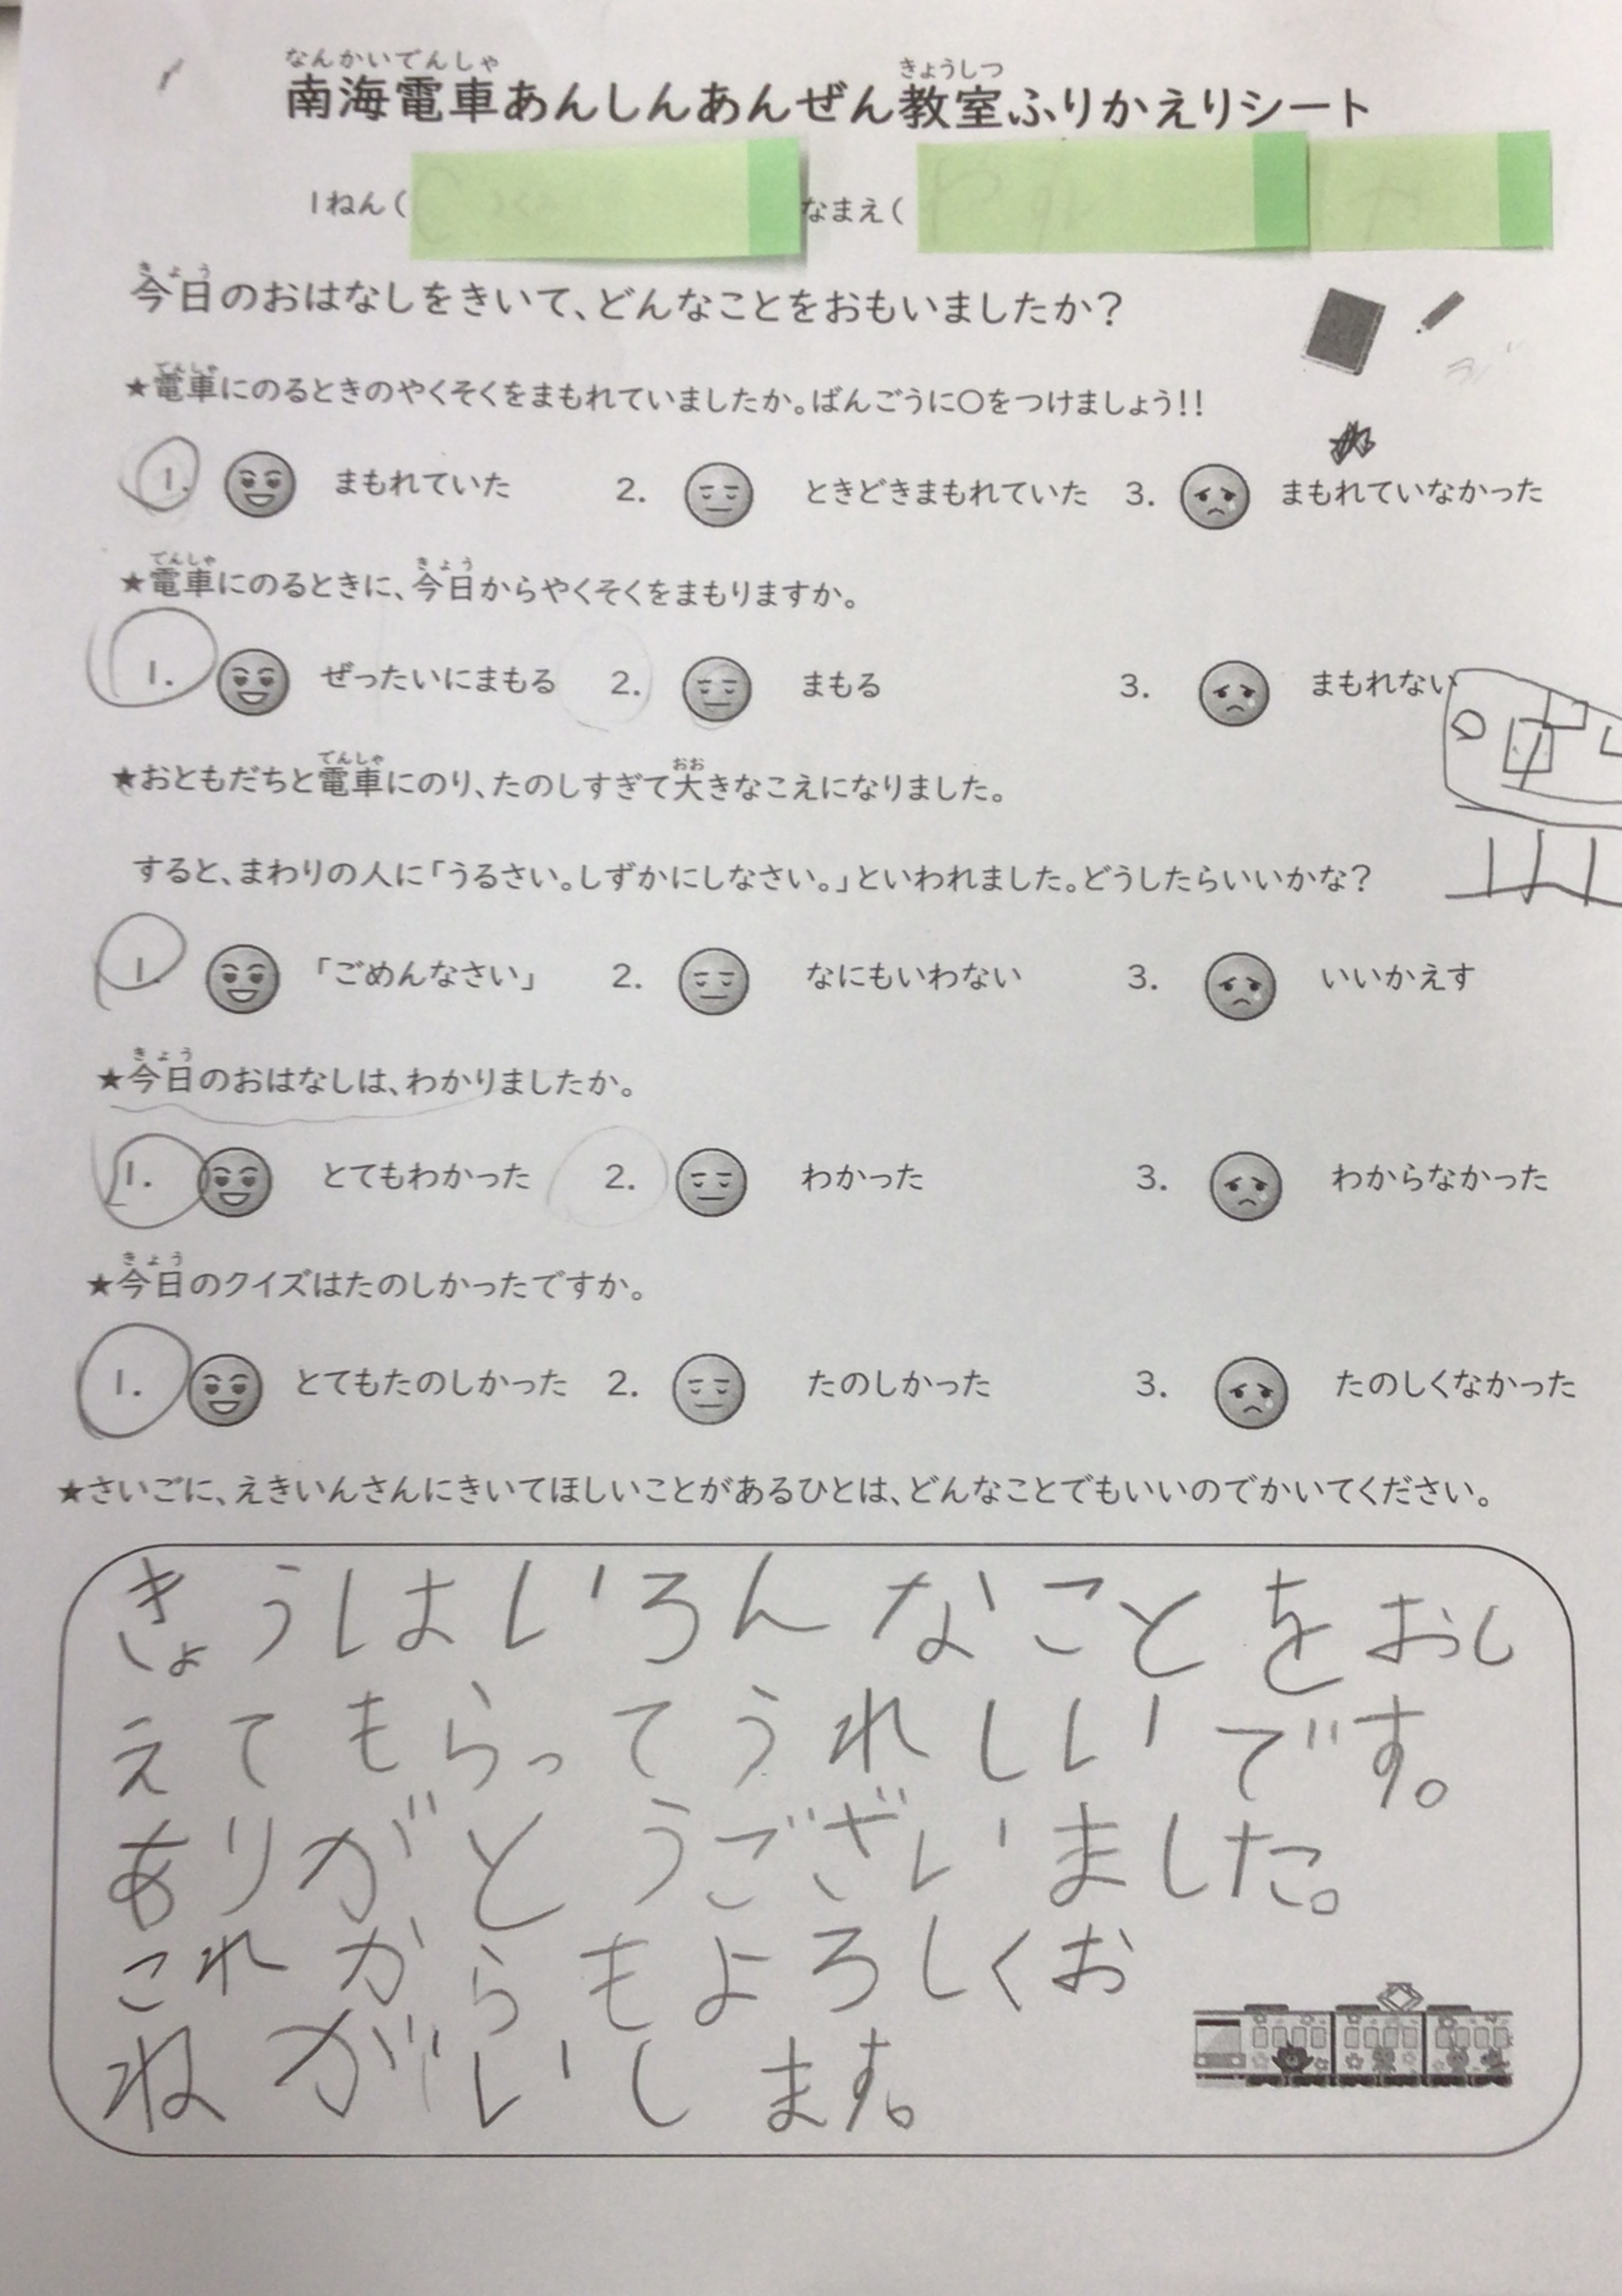 なんかいでんしゃ きょうしつ
南海電車あんしんあんぜん教室ふりかえりシート
1ねん( なまえ(
きょう
今日のおはなしをきいて、どんなことをおもいましたか?
でんしゃ
★電車にのるときのやくそくをまもれていましたか。ばんごうに○をつけましょう!!
1. まもれていた 2. ときどきまもれていた 3. まもれていなかった
でんしゃ きょう
★電車にのるときに、今日からやくそくをまもりますか。
1. ぜったいにまもる 2. まもる 3. まもれない
でんしゃ おお
★おともだちと電車にのり、たのしすぎて大きなこえになりました。
すると、まわりの人に「うるさい。しずかにしなさい。」といわれました。どうしたらいいかな?
1. 「ごめんなさい」 2. なにもいわない 3. いいかえす
きょう
★今日のおはなしは、わかりましたか。
1. とてもわかった 2. わかった 3. わからなかった
きょう
★今日のクイズはたのしかったですか。
1. とてもたのしかった 2. たのしかった 3. たのしくなかった
★さいごに、えきいんさんにきいてほしいことがあるひとは、どんなことでもいいのでかいてください。
きょうはいろんなことをおし
えてもらってうれしいです。
ありがとうございました。
これからもよろしくお
ねがいします。